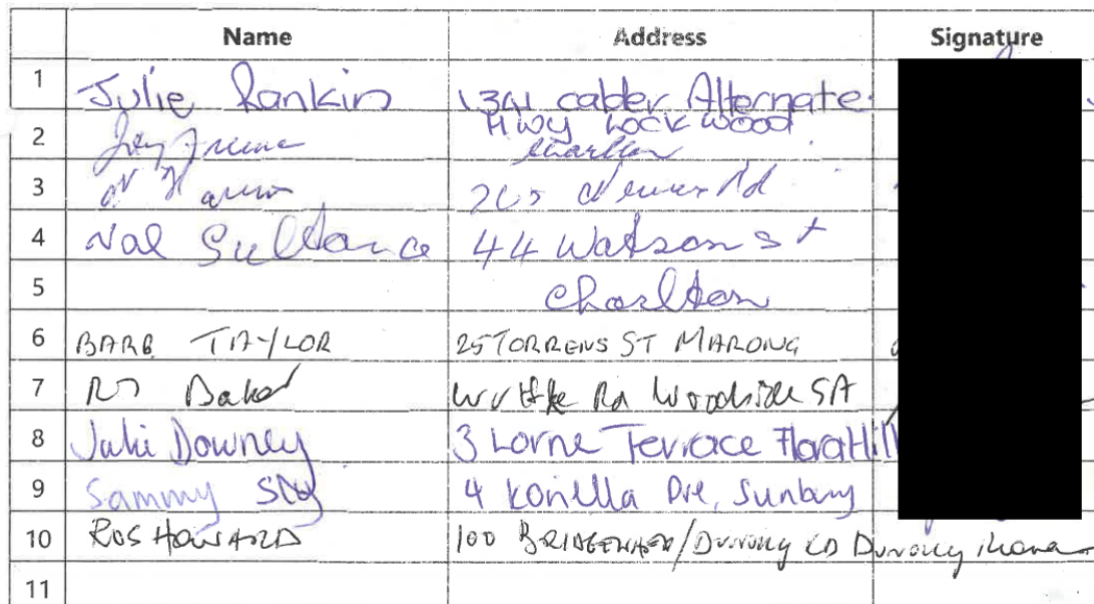 Name Address Signature
1 Julie Rankin 1311 calder Alternate
Hwy Lockwood
2 Charlton
3 Rd
4 Val Sultance 44 Watson st
5 Charlton
6 BARB TAYLOR 25 TORRENS ST MARONG
7 Baker Rd Woodside SA
8 Julie Downey 3 Lorne Terrace Flora Hill
9 Sammy Sly 4 Dve, Sunbury
10 ROS HOWARD 100 BRIDGEWATER/DUNOLLY RD DUNOLLY
11